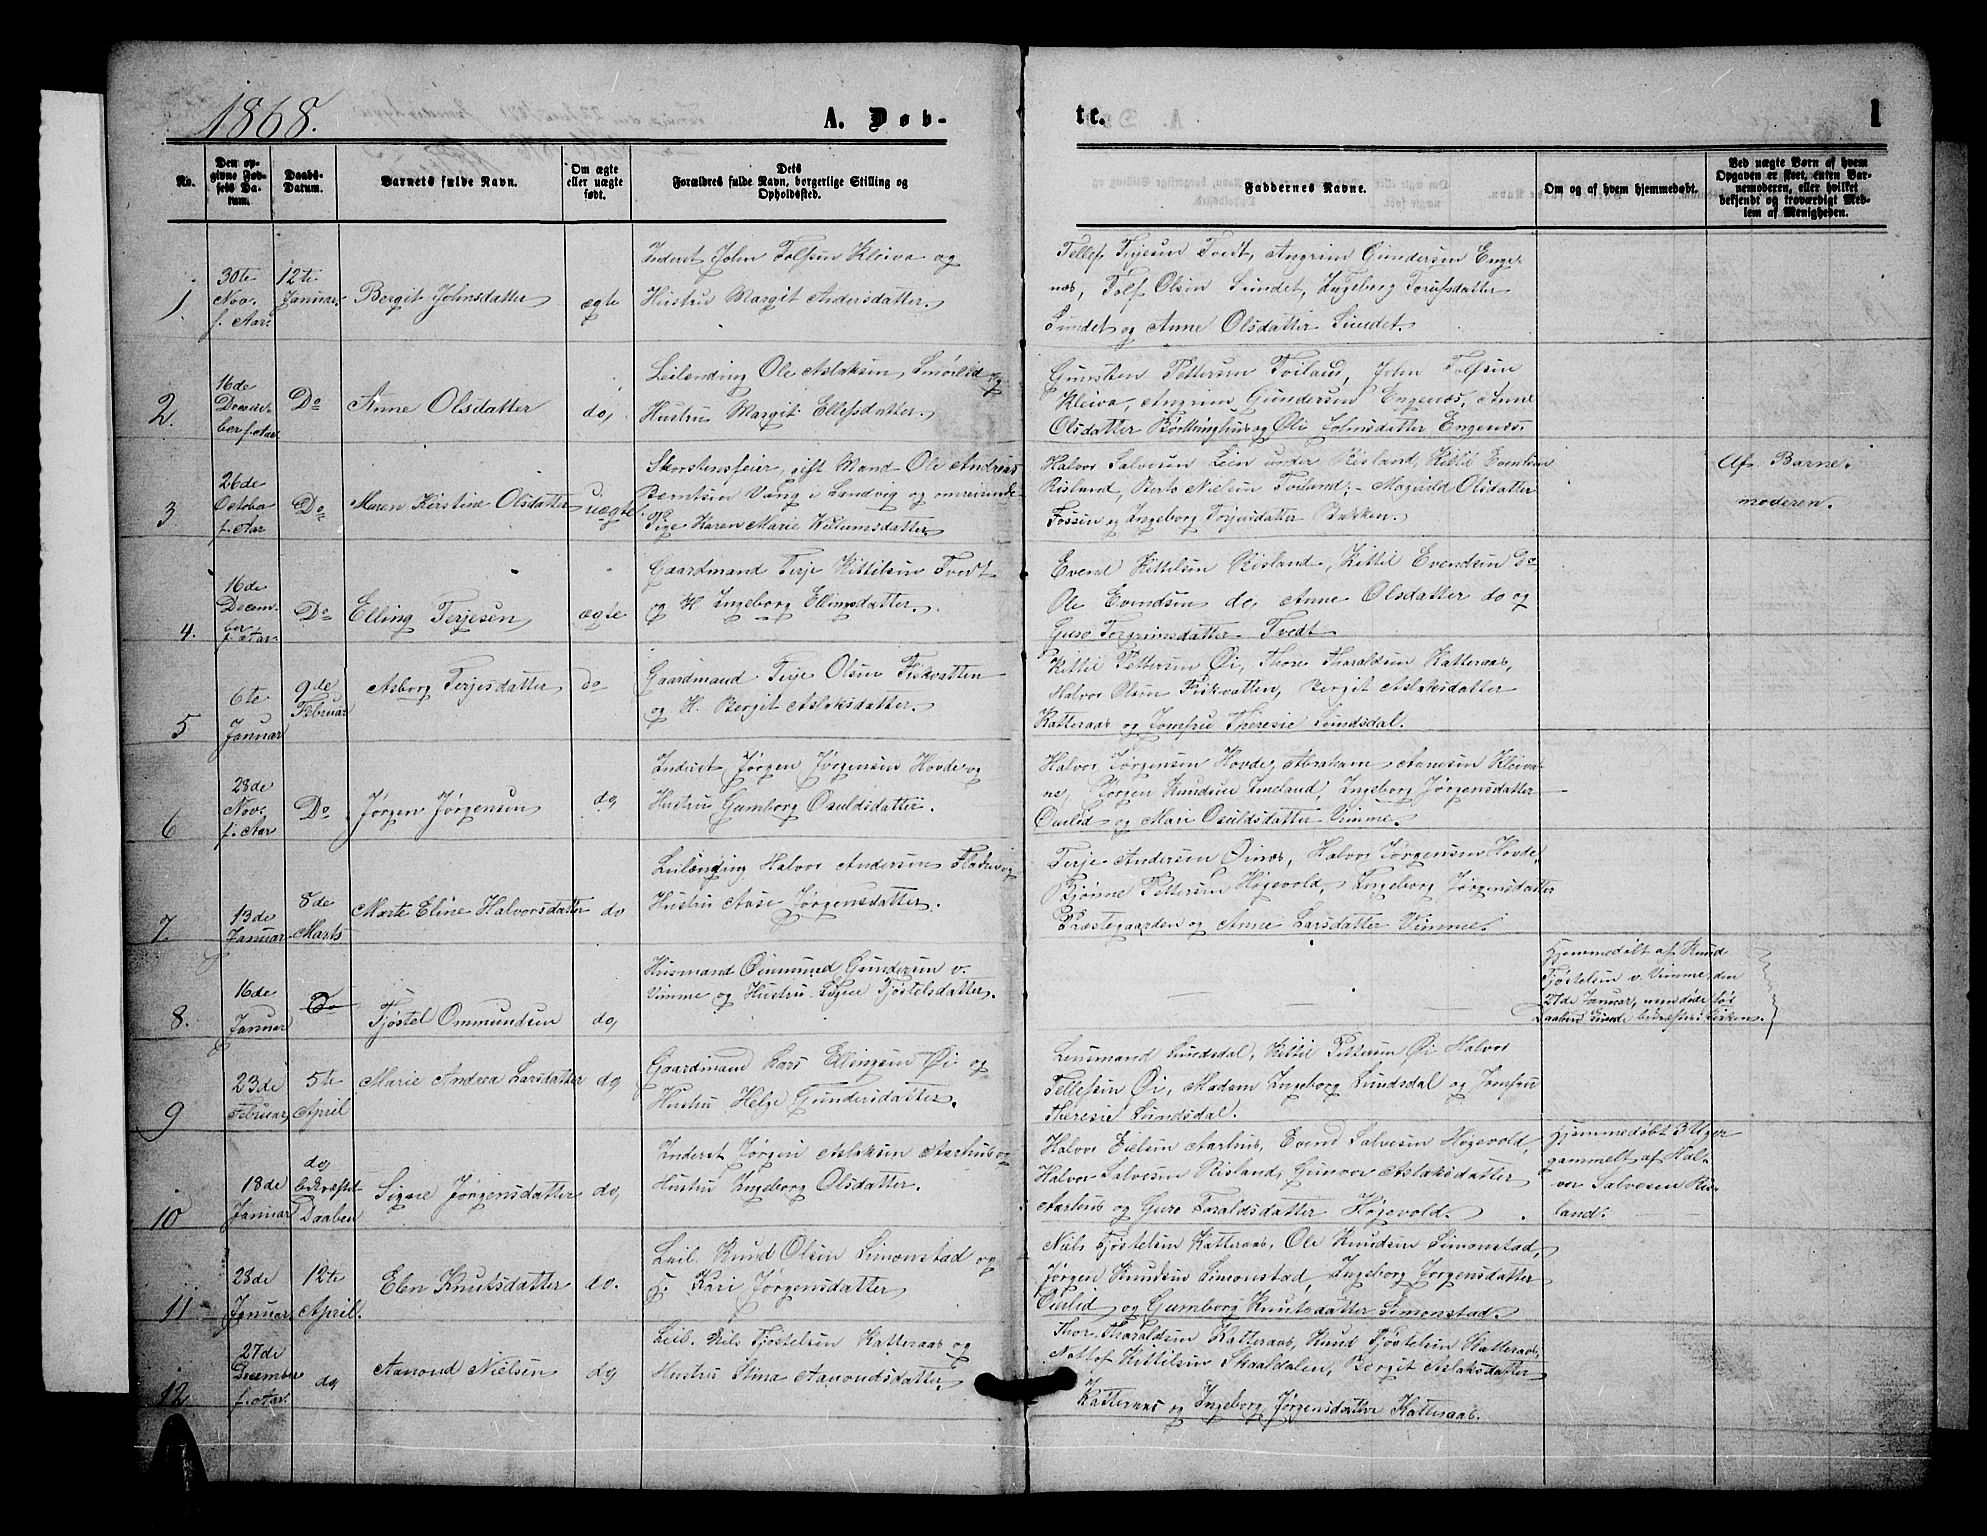 1868.
A. Døb-
te.
1
No.
Den op-
givne Fød-
sels Da-
tum.
Daabs-
Datum.
Barnets fulde Navn.
Om ægte
eller uægte
født.
Dets
Forældres fulde Navn, borgerlige Stilling og
Opholdssted.
Faddernes Navne.
Om og af hvem hjemmedøbt.
Ved uægte Børn af hvem
Opgaven er skeet, enten Bar-
nemoderen, eller hvilket
bekjendt og troværdigt Med-
lem af Menigheden.
1.
30te
Nov.
f. Aar.
12te
Januar.
Bergit Johnsdatter
ægte
Inderst John Tolfsen Kleiva og
Hustru Margit Andersdatter.
Tellef Terjesen Tvedt, Angrim Gundersen Enge-
næs, Tolf Olsen Sundet, Ingeborg
Sundet og Anne Olsdatter Sundet.
2.
16de
Decem-
ber f. Aar.
Do
Anne Olsdatter
do,
Leilending Ole Aslaksen Smørlid og
Hustru Margit Ellefsdatter.
Gunsten Pettersen Toiland, John Tolfsen
Kleiva, Angrim Gundersen Engenæs, Anne
Olsdatter og Oli Johnsdatter Engenæs.
3
26de
October
f. Aar
Do
Maren Kirstine Olsdatter
uægte.
Skorstensfeier, gift Mand Ole Andreas
Berntsen Vang i Landvig og omreisende
Pige Karen Marie Willumsdatter.
Halvor Salvesen Lein under Risland, Kittil Evensen
Risland, Berto Nielsen Toiland, Magnild Olsdatter
Fossen og Ingeborg Terjesdatter Bakken.
Af Barne-
moderen.
4.
16de
Decem-
ber
f. Aar.
Do
Elling Terjesen
ægte
Gaardmand Terje Kittilsen Tvedt
og H. Ingeborg Ellingsdatter.
Evend Kittilsen Risland, Kittil Evendsen do
Ole Evendsen do, Anne Olsdatter do og
Guro Torgrimsdatter Tvedt
5
6te
Januar
9de
Februar
Asborg Terjesdatter
do
Gaardmand Terje Olsen Fiskvatten
og H. Bergit Aslaksdatter.
Kittil Pettersen Øi, Thore Tharaldsen Katteraas,
Halvor Olsen Fiskvatten, Bergit Aslaksdatter
Katteraas og Jomfru Theresie Lundsdal.
6
28de
Nov.
f. Aar
Do
Jørgen Jørgensen
do,
Inderst Jørgen Jørgensen Hovde og
Hustru Gumborg Osuldsdatter.
Halvor Jørgensen Hovde, Abraham Aanesen Kleiva-
ne, Jørgen Knudsen Imeland, Ingeborg Jørgensdatter
Ouslid og Mari Osuldsdatter Vimme.
7.
13de
Januar
8de
Marts
Marte Eline Halvorsdatter
do
Leilænding Halvor Andersen og
Hustru Aase Jørgensdatter.
Terje Andersen Øinæs, Halvor Jørgensen Hovde,
Bjønne Pettersen Høgevold, Ingeborg Jørgensdatter
Præstegaarden og Anne Larsdatter Vimme.
8.
16de
Januar
Do
Tjøstel Ommundsen
do,
Husmand Ommund Gundersen v.
Vimme og Hustru Signe Tjøstelsdatter.
Hjemmedøbt af Knud
Tjøstelsen v. Vimme, den
27de Januar, men døde før
Daaben kunde bekræftes i Kirken.
9
23de
Februar,
5te
April
Marie Andrea Larsdatter
do,
Gaardmand Lars Ellingsen Øi og
Hustru Helge Gundersdatter.
Lensmand Lundsdal, Kittil Pettersen Øi, Halvor
Tellefsen Øi, Madam Ingeborg Lundsdal og Jomfru
Theresie Lundsdal.
10
18de
Januar
do,
bekræftet
Daaben
Signe Jørgensdatter
do,
Inderst Jørgen Aslaksen Aarhus og
Hustru Ingeborg Olsdatter.
Halvor Eielsen Aarhus, Evend Salvesen Høgevold,
Halvor Salvesen Risland, Gunvor Aslaksdatter
Aarhus og Guro Taraldsdatter Høgevold.
Hjemmedøbt 3 Uger
gammelt af Hal-
vor Salvesen Ris-
land.
11
28de
Januar
12te
April.
Elen Knutsdatter
do.
Leil. Knud Olsen Simonstad og
H. Kari Jørgensdatter
Niels Tjøstelsen Katteraas, Ole Knudsen Simonstad,
Jørgen Knudsen Simonstad, Ingeborg Jørgensdatter
Ouslid og Gumborg Knutsdatter Simonstad.
12
27de
December
f. Aar.
do
Aanond Nielsen
do,
Leil. Nils Tjøstelsen Katteraas og
Hustru Stina Aanondsdatter.
Thor Tharaldsen Katteraas, Knud Tjøstelsen Katteraas,
Nottof Kittilsen Skaaldalen, Bergit Aslaksdatter
Katteraas og Ingeborg Jørgensdatter Katteraas.